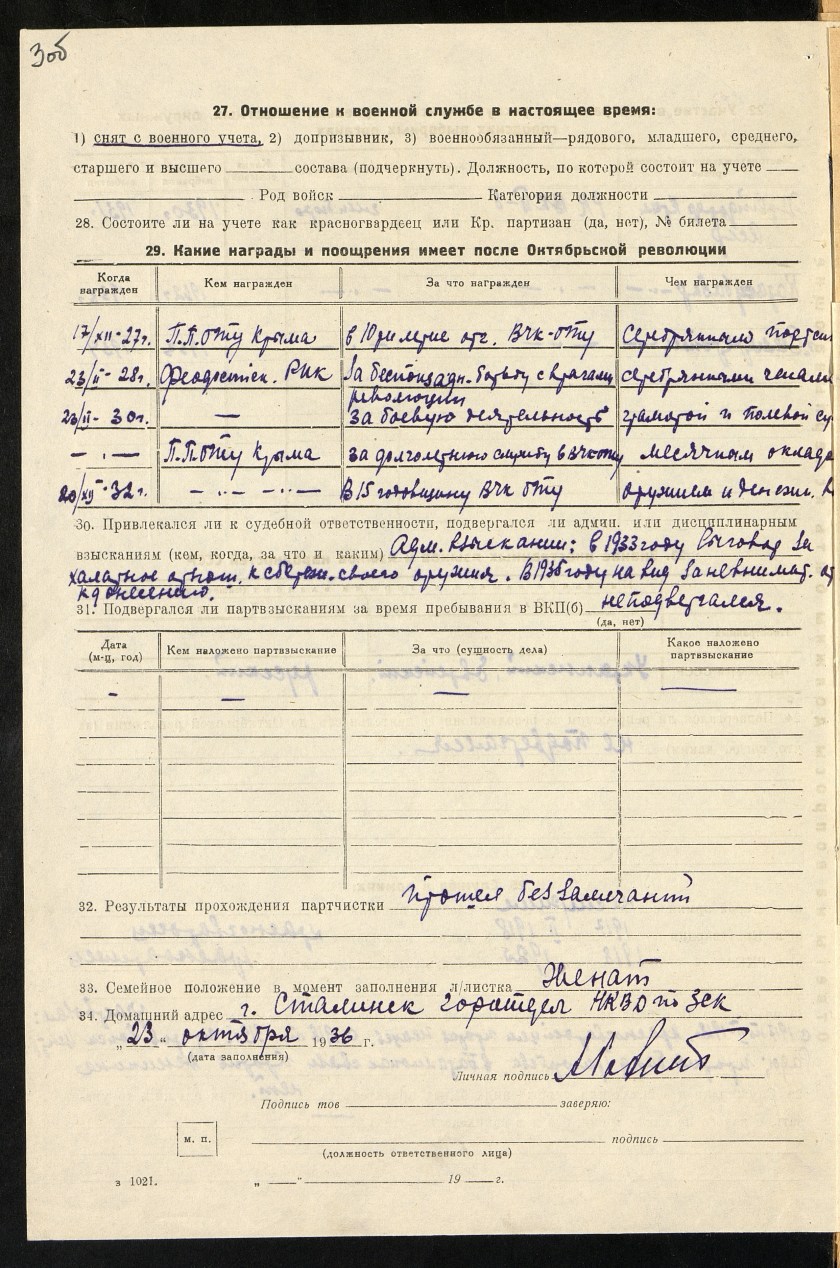 30б
27. Отношение к военной службе в настоящее время:
1) снят с военного учета, 2) допризывник, 3) военнообязанный—рядового, младшего, среднего,
старшего и высшего состава (подчеркнуть). Должность, по которой состоит на учете
Род войск Категория должности
28. Состоите ли на учете как красногвардеец или Кр. партизан (да, нет), № билета
29. Какие награды и поощрения имеет после Октябрьской революции
Когда награжден Кем награжден За что награжден Чем награжден
17/XII-27г. П.П.ОГПУ Крыма в 10ти летие ВЧК-ОГПУ Серебрянным портси
23/II-28г. Феодосийск. РИК За беспощадн. борьбу с врагами революции серебрянными часами
23/II-30г. — за боевую деятельность грамотой и полевой су
— . — П.П.ОГПУ Крыма за долголетнюю службу в ВЧКОГПУ месячным оклада
20/XII-32г. — .. — — .. — В 15 годовщину ВЧК ОГПУ оружием и денежн.
30. Привлекался ли к судебной ответственности, подвергался ли админ. или дисциплинарным
взысканиям (кем, когда, за что и каким) Адм. взыскании: в 1933 году выговор за
халатное отнош. к сбереж. своего оружия. В 1935 году на вид за невнимат. от
к донесению.
31. Подвергался ли партвзысканиям за время пребывания в ВКП(б) неподвергался.
(да, нет)
Дата (м-ц, год) Кем наложено партвзыскание За что (сущность дела) Какое наложено партвзыскание
— — — —
32. Результаты прохождения партчистки Прошел без замечаний
33. Семейное положение в момент заполнения л/листка Женат
34. Домашний адрес г. Сталинск горотдел НКВД по ЗСК
„23" октября 1936 г.
(дата заполнения)
Личная подпись
Подпись тов заверяю:
м. п. подпись
(должность ответственного лица)
з 1021. „ — " 19 — г.